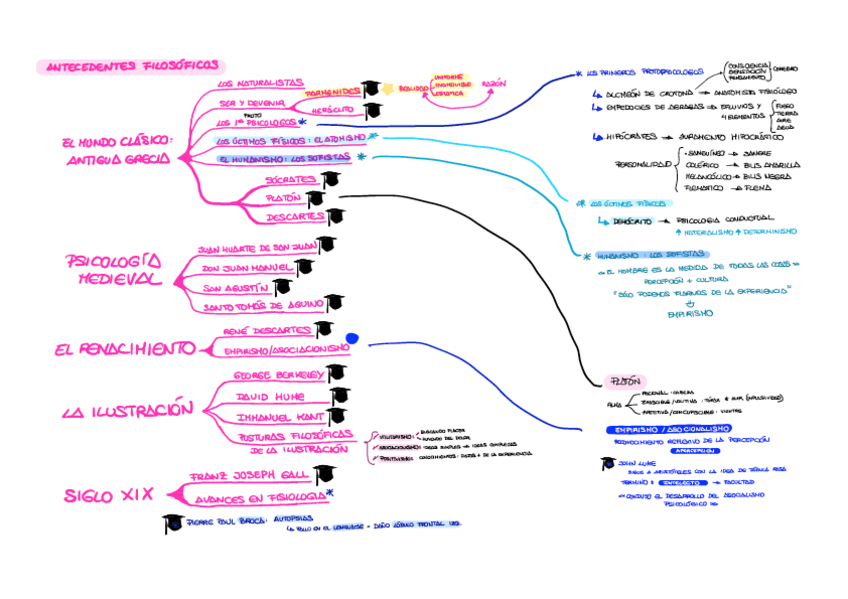 ANTECEDENTES FILOSÓFICOS
EL MUNDO CLÁSICO:
ANTIGUA GRECIA
LOS NATURALISTAS
SER Y DEVENIR
PARMENIDES
REALIDAD
UNIFORME
INDIVISIBLE
ESTÁTICA
RAZÓN
HERÁCLITO
PROTO
LOS 1ºS PSICOLOGOS *
LOS ÚLTIMOS FÍSICOS: EL ATOMISMO *
EL HUMANISMO: LOS SOFISTAS *
SÓCRATES
PLATÓN
DESCARTES
PSICOLOGÍA
MEDIEVAL
JUAN HUARTE DE SAN JUAN
DON JUAN MANUEL
SAN AGUSTÍN
SANTO TOMÁS DE AQUINO
EL RENACIMIENTO
RENÉ DESCARTES
EMPIRISMO/ASOCIACIONISMO
LA ILUSTRACIÓN
GEORGE BERKELEY
DAVID HUME
IMMANUEL KANT
POSTURAS FILOSÓFICAS
DE LA ILUSTRACIÓN
UTILITARISMO: BUSCANDO PLACER
HUYENDO DEL DOLOR
ASOCIACIONISMO: IDEAS SIMPLES → IDEAS COMPLEJAS
POSITIVISMO: CONOCIMIENTOS: DATOS + DE LA EXPERIENCIA
SIGLO XIX
FRANZ JOSEPH GALL
AVANCES EN FISIOLOGIA *
PIERRE PAUL BROCA: AUTOPSIAS
↳ FALLO EN EL LENGUAJE - DAÑO LÓBULO FRONTAL IZQ.
* LOS PRIMEROS PROTOPSICOLOGOS
CONSCIENCIA
SENSACIÓN
PENSAMIENTO
CEREBRO
↳ ALCMEÓN DE CROTONA → ANATOMISTA FISIÓLOGO
↳ EMPEDOCLES DE AGRAGAS → EFLUVIOS Y
4 ELEMENTOS
FUEGO
TIERRA
AIRE
AGUA
↳ HIPÓCRATES → JURAMENTO HIPOCRÁTICO
PERSONALIDAD
· SANGUÍNEO → SANGRE
COLÉRICO → BILIS AMARILLA
MELANCÓLICO → BILIS NEGRA
FLEMATICO → FLEMA
* LOS ÚLTIMOS FÍSICOS
↳ DEMÓCRITO → PSICOLOGIA CONDUCTUAL
↑ MATERIALISMO ↑ DETERMINISMO
* HUMANISMO: LOS SOFISTAS
"EL HOMBRE ES LA MEDIDA DE TODAS LAS COSAS"
PERCEPCIÓN + CULTURA
"SOLO PODEMOS FIARNOS DE LA EXPERIENCIA"
EMPIRISMO
PLATÓN
ALMA
RACIONAL: CABEZA
IRASCIBLE/VOLITIVA: TÓRAX
APETITIVA/CONCUPISCIBLE: VIENTRE
EMPIRISMO / ASOCIALISMO
RECONOCIMIENTO REFLEXIVO DE LA PERCEPCIÓN
APERCEPCIÓN
JOHN LOCKE
SIGUE A ARISTÓTELES CON LA IDEA DE TÁBULA RASA
TERMINO: INTELECTO → FACULTAD
"CONDUJO EL DESARROLLO DEL ASOCIALISMO
PSICOLÓGICO"